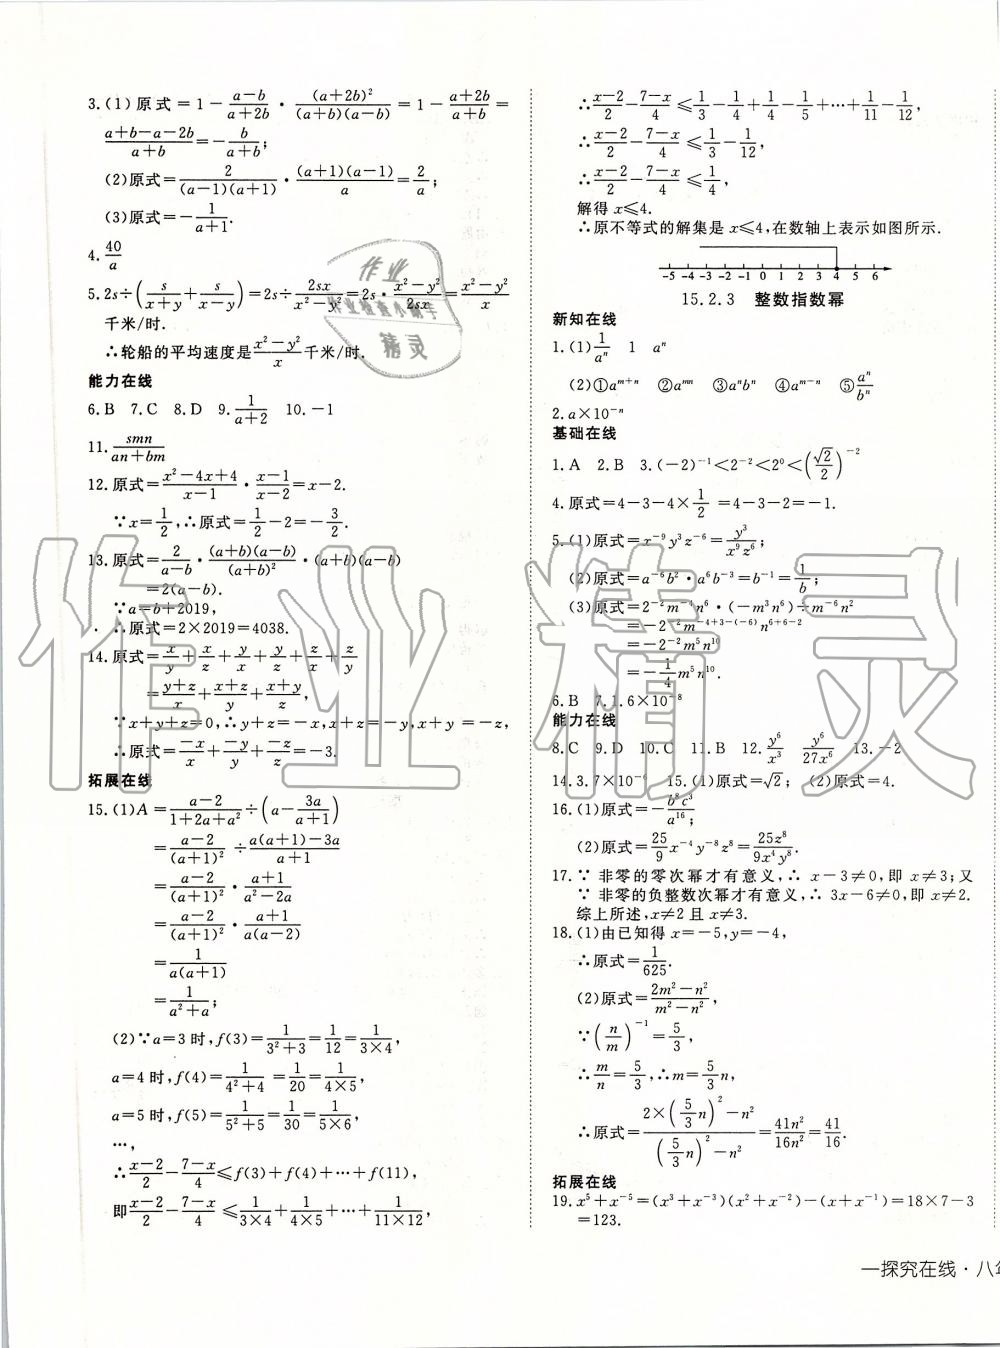 3.(1)原式=1-\frac{a-b}{a+2b}·\frac{(a+2b)^2}{(a+b)(a-b)}=1-\frac{a+2b}{a+b}=
\frac{a+b-a-2b}{a+b}=-\frac{b}{a+b};
(2)原式=\frac{2}{(a-1)(a+1)}·\frac{(a+1)(a-1)}{a}=\frac{2}{a};
(3)原式=-\frac{1}{a+1}.
4.\frac{40}{a}
5.2s÷(\frac{s}{x+y}+\frac{s}{x-y})=2s÷\frac{2sx}{x^2-y^2}=2s·\frac{x^2-y^2}{2sx}=\frac{x^2-y^2}{x}
千米/时.
∴轮船的平均速度是\frac{x^2-y^2}{x}千米/时.
能力在线
6.B 7.C 8.D 9.\frac{1}{a+2} 10.-1
11.\frac{smn}{an+bm}
12.原式=\frac{x^2-4x+4}{x-1}·\frac{x-1}{x-2}=x-2.
∵x=\frac{1}{2},∴原式=\frac{1}{2}-2=-\frac{3}{2}.
13.原式=\frac{2}{a-b}·\frac{(a+b)(a-b)}{(a+b)^2}·(a+b)(a-b)
=2(a-b).
∵a=b+2019,
∴原式=2×2019=4038.
14.原式=\frac{x}{y}+\frac{x}{z}+\frac{y}{x}+\frac{y}{z}+\frac{z}{x}+\frac{z}{y}
=\frac{y+z}{x}+\frac{x+z}{y}+\frac{x+y}{z},
∵x+y+z=0,∴y+z=-x,x+z=-y,x+y=-z,
∴原式=\frac{-x}{x}+\frac{-y}{y}+\frac{-z}{z}=-3.
拓展在线
15.(1)A=\frac{a-2}{1+2a+a^2}÷(a-\frac{3a}{a+1})
=\frac{a-2}{(a+1)^2}÷\frac{a(a+1)-3a}{a+1}
=\frac{a-2}{(a+1)^2}·\frac{a+1}{a^2-2a}
=\frac{a-2}{(a+1)^2}·\frac{a+1}{a(a-2)}
=\frac{1}{a(a+1)}
=\frac{1}{a^2+a};
(2)∵a=3时,f(3)=\frac{1}{3^2+3}=\frac{1}{12}=\frac{1}{3×4},
a=4时,f(4)=\frac{1}{4^2+4}=\frac{1}{20}=\frac{1}{4×5},
a=5时,f(5)=\frac{1}{5^2+5}=\frac{1}{30}=\frac{1}{5×6},
…,
∴\frac{x-2}{2}-\frac{7-x}{4}≤f(3)+f(4)+…+f(11),
即\frac{x-2}{2}-\frac{7-x}{4}≤\frac{1}{3×4}+\frac{1}{4×5}+…+\frac{1}{11×12},
∴\frac{x-2}{2}-\frac{7-x}{4}≤\frac{1}{3}-\frac{1}{4}+\frac{1}{4}-\frac{1}{5}+…+\frac{1}{11}-\frac{1}{12},
∴\frac{x-2}{2}-\frac{7-x}{4}≤\frac{1}{3}-\frac{1}{12},
∴\frac{x-2}{2}-\frac{7-x}{4}≤\frac{1}{4},
解得x≤4.
∴原不等式的解集是x≤4,在数轴上表示如图所示.
-5 -4 -3 -2 -1 0 1 2 3 4 5 6
15.2.3 整数指数幂
新知在线
1.(1)\frac{1}{a^n} 1 a^n
(2)①a^{m+n} ②a^{mn} ③a^nb^n ④a^{m-n} ⑤\frac{a^n}{b^n}
2.a×10^{-n}
基础在线
1.A 2.B 3.(-2)^{-1}<2^{-2}<2^0<(\frac{√2}{2})^{-2}
4.原式=4-3-4×\frac{1}{2}=4-3-2=-1.
5.(1)原式=x^{-9}y^3z^{-6}=\frac{y^3}{x^9z^6};
(2)原式=a^{-6}b^2·a^6b^{-3}=b^{-1}=\frac{1}{b};
(3)原式=2^{-2}m^{-4}n^6·(-m^3n^6)÷m^{-6}n^2
=-2^{-2}m^{-4+3-(-6)}n^{6+6-2}
=-2^{-2}m^5n^{10}
=-\frac{1}{4}m^5n^{10}.
6.B 7.1.6×10^{-8}
能力在线
8.C 9.D 10.C 11.B 12.\frac{y^6}{x^3} \frac{y^6}{27x^6} 13.-2
14.3.7×10 15.(1)原式=√2; (2)原式=4.
16.(1)原式=-\frac{b^8c^3}{a^{16}};
(2)原式=\frac{25}{9}x^{-4}y^{-8}z^8=\frac{25z^8}{9x^4y^8}.
17.∵非零的零次幂才有意义,∴x-3≠0,即x≠3;又
∵非零的负整数次幂才有意义,∴3x-6≠0,即x≠2.
综上所述,x≠2且x≠3.
18.(1)由已知得x=-5,y=-4,
∴原式=\frac{1}{625}.
(2)原式=\frac{2m^2-n^2}{m^2-n^2},
∵(\frac{n}{m})^{-1}=\frac{5}{3},
∴\frac{m}{n}=\frac{5}{3},∴m=\frac{5}{3}n,
∴原式=\frac{2×(\frac{5}{3}n)^2-n^2}{(\frac{5}{3}n)^2-n^2}=\frac{41n^2}{16n^2}=\frac{41}{16}.
拓展在线
19.x^5+x^{-5}=(x^3+x^{-3})(x^2+x^{-2})-(x+x^{-1})=18×7-3
=123.
一探究在线·八年
作业
作业检查小助手
精灵
作业精灵